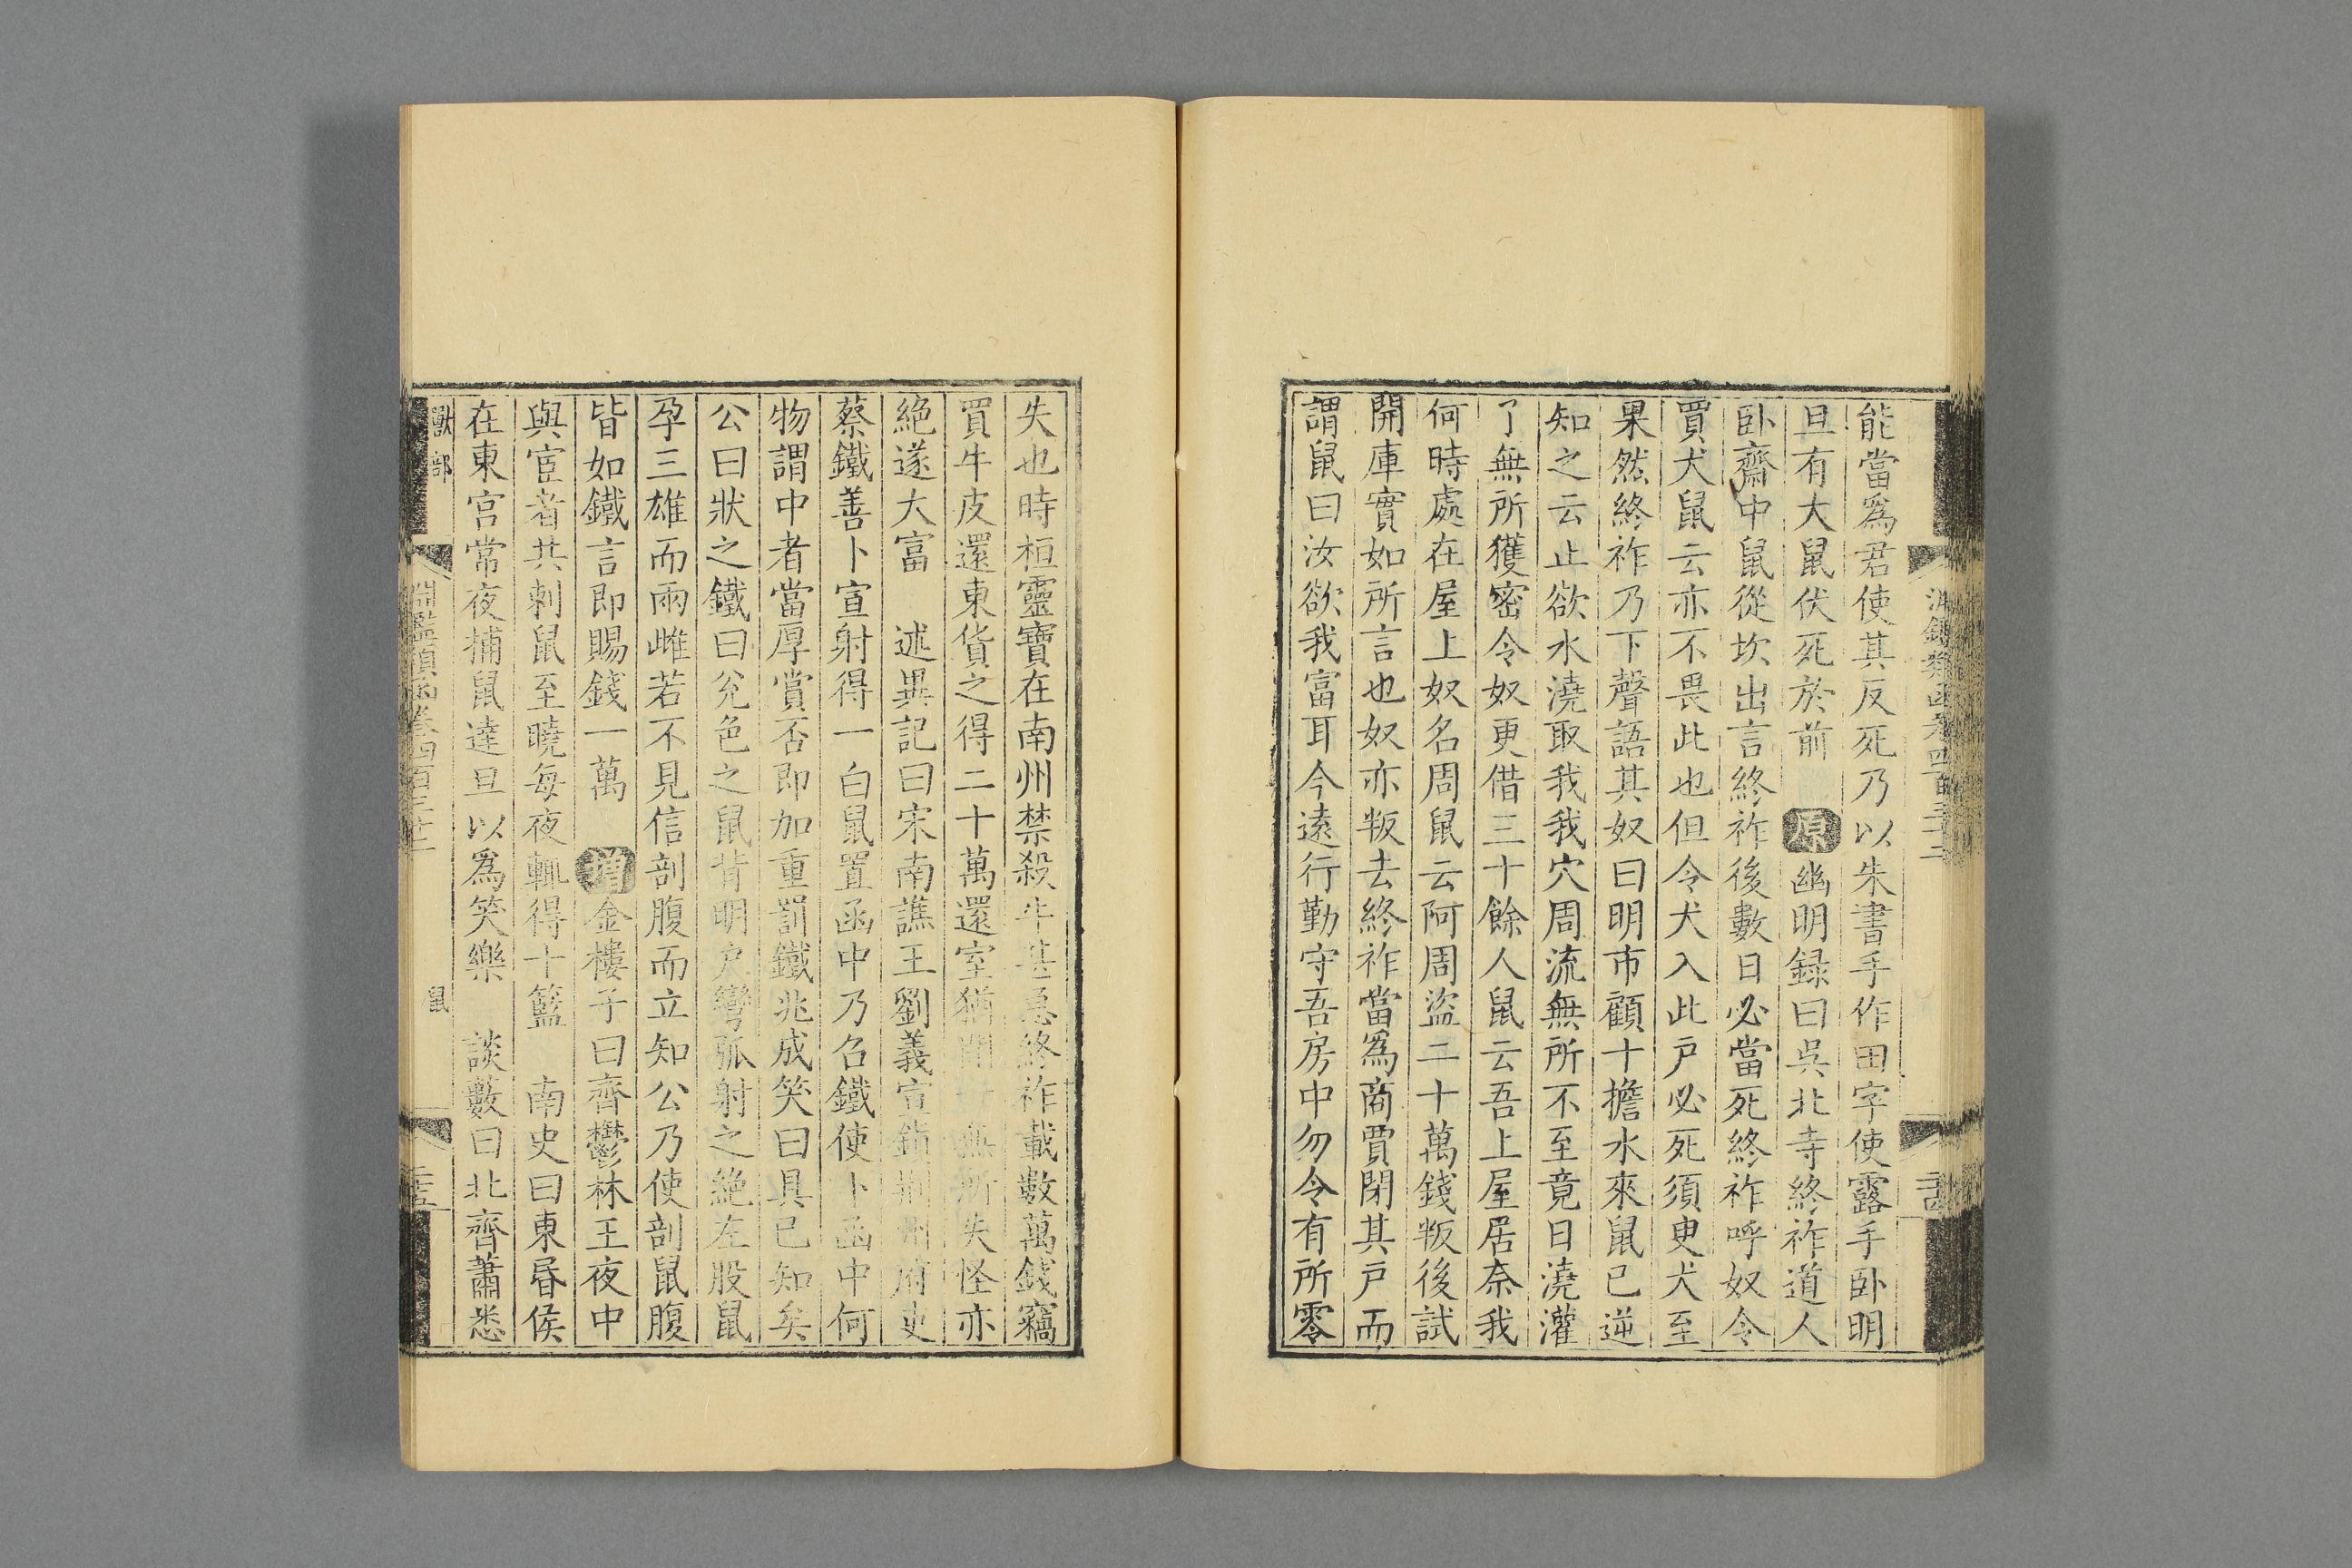 能當爲君使其反死乃以朱書手作田字使露手卧明
旦有大鼠伏死於前 原 幽明録曰吳北寺終祚道人
卧齋中鼠從坎出言終祚後數日必當死終祚呼奴令
買犬鼠云亦不畏此也但令犬入此戸必死須臾犬至
果然終祚乃下聲語其奴曰明市顧十擔水來鼠已逆
知之云止欲水澆取我我穴周流無所不至竟日澆灌
了無所獲密令奴更借三十餘人鼠云吾上屋居奈我
何時處在屋上奴名周鼠云阿周盜二十萬錢叛後試
開庫實如所言也奴亦叛去終祚當爲商賈閉其戸而
謂鼠曰汝欲我富耳今遠行勤守吾房中勿令有所零
失也時桓靈寶在南州禁殺牛甚急終祚載數萬錢竊
買牛皮還東貨之得二十萬還室猶閉無所失怪亦
絶遂大富 述異記曰宋南譙王劉義宣鎮荆州府吏
蔡鐵善卜宣射得一白鼠置函中乃召鐵使卜函中何
物謂中者當厚賞否即加重罰鐵兆成笑曰具已知矣
公曰狀之鐵曰兊色之鼠背明戸彎弧射之絶左股鼠
孕三雄而兩雌若不見信剖腹而立知公乃使剖鼠腹
皆如鐵言即賜錢一萬 增 金樓子曰齊鬱林王夜中
與宦者共刺鼠至曉每夜輒得十籃 南史曰東昏侯
在東宫常夜捕鼠達旦以爲笑樂 談藪曰北齊蕭悉
獸部 淵鑑類函卷四百三十二 鼠 二十五